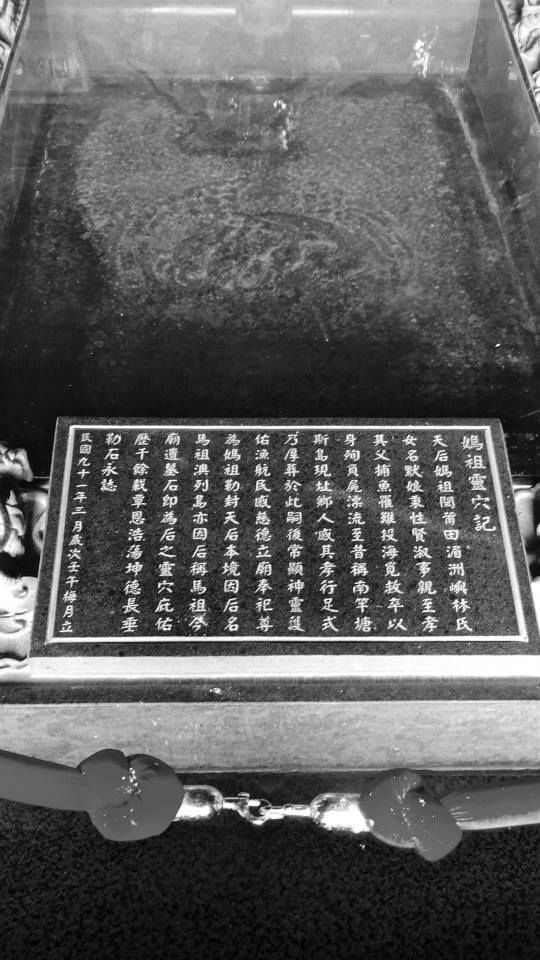 媽祖靈穴記
天后媽祖閩莆田湄洲嶼林氏
女名默娘秉性賢淑事親至孝
其父捕魚罹難投海覓救卒以
身殉負屍漂流至昔稱南竿塘
斯島現址鄉人感其孝行足式
乃厚葬於此嗣後常顯神靈護
佑漁航民感慈德立廟奉祀尊
為媽祖勅封天后本境因后名
馬祖澳列島亦因后稱馬祖今
廟遺墓石即為后之靈穴庇佑
歷千餘載覃恩浩蕩坤德長垂
勒石永誌
民國九十一年三月歲次壬午梅月立